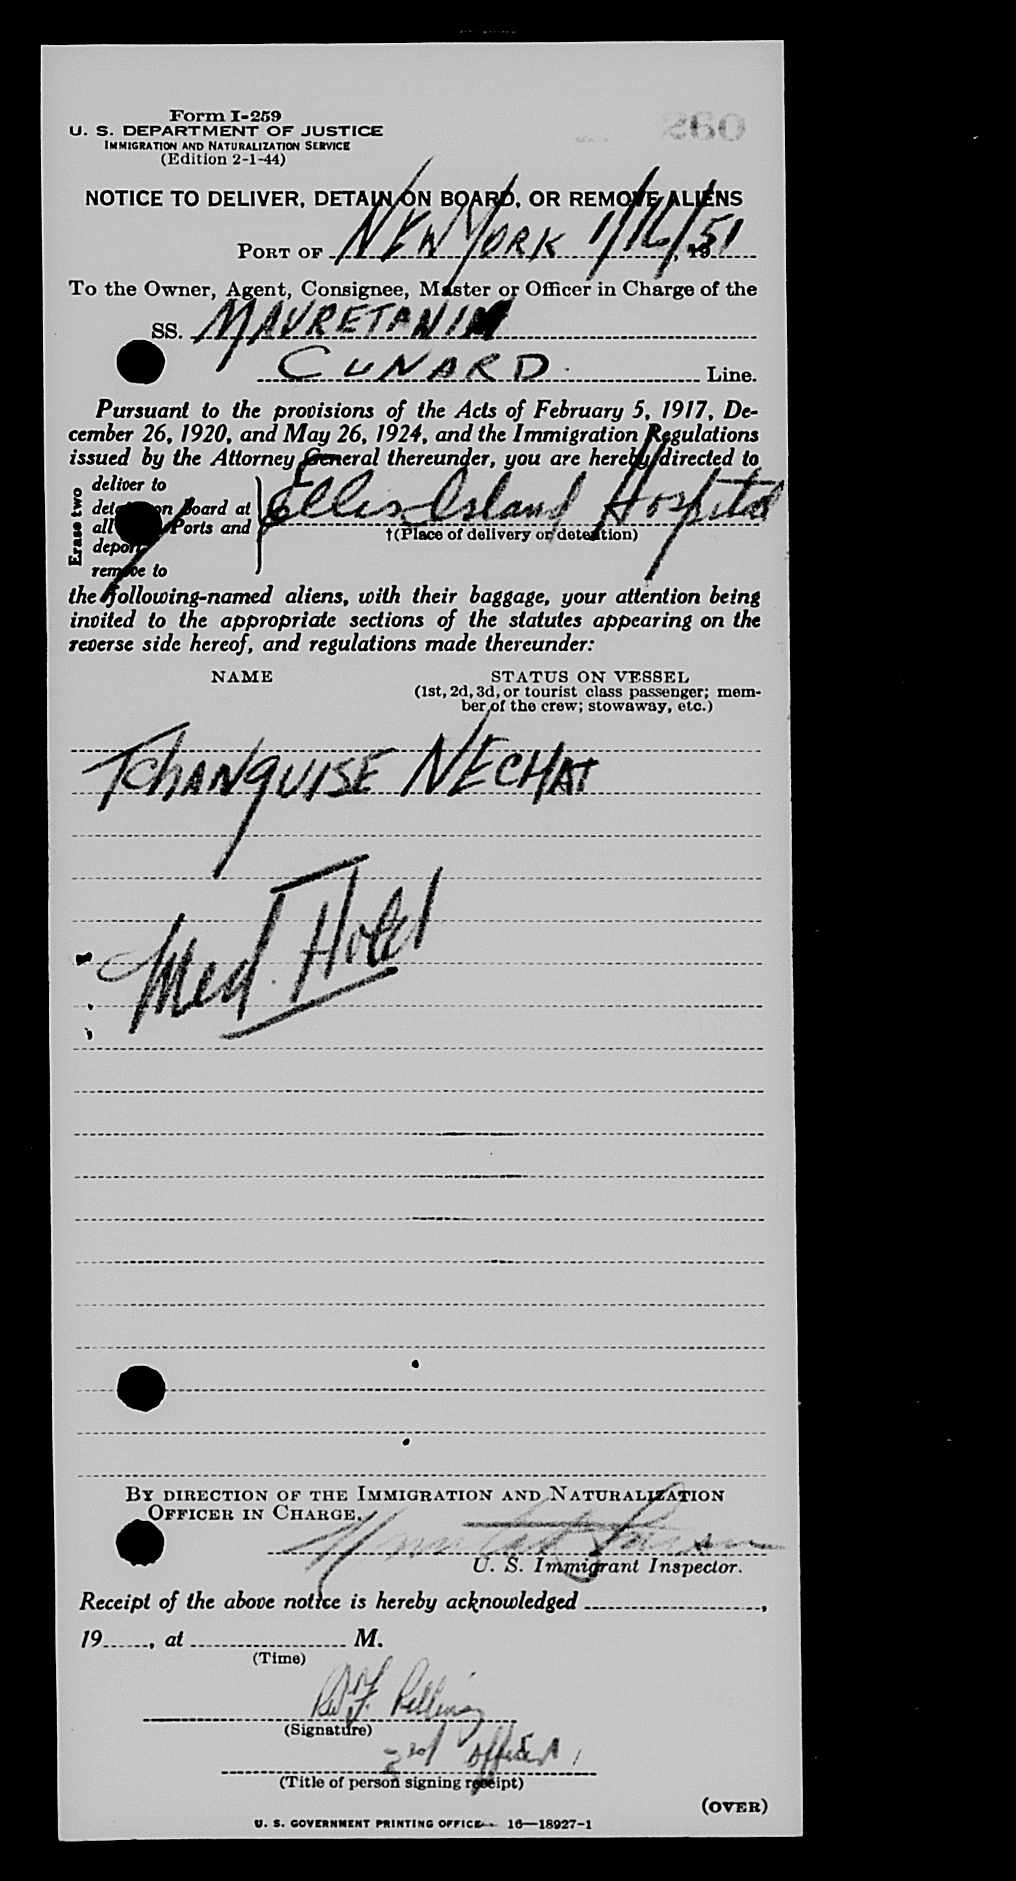 Form I-259
U. S. DEPARTMENT OF JUSTICE
IMMIGRATION AND NATURALIZATION SERVICE
(Edition 2-1-44)
260
NOTICE TO DELIVER, DETAIN ON BOARD, OR REMOVE ALIENS
PORT OF NEW YORK 1/16/51, 19
To the Owner, Agent, Consignee, Master or Officer in Charge of the
SS. MAURETANIA
CUNARD Line.
Pursuant to the provisions of the Acts of February 5, 1917, De-
cember 26, 1920, and May 26, 1924, and the Immigration Regulations
issued by the Attorney General thereunder, you are hereby directed to
Erase two
deliver to
detain on board at
all Ports and
deport
remove to
Ellis Island Hospital
†(Place of delivery or detention)
the following-named aliens, with their baggage, your attention being
invited to the appropriate sections of the statutes appearing on the
reverse side hereof, and regulations made thereunder:
NAME STATUS ON VESSEL
(1st, 2d, 3d, or tourist class passenger; mem-
ber of the crew; stowaway, etc.)
TChANQUISE NECHAT
Med. Hold
BY DIRECTION OF THE IMMIGRATION AND NATURALIZATION
OFFICER IN CHARGE.
U. S. Immigrant Inspector.
Receipt of the above notice is hereby acknowledged ,
19 , at M.
(Time)
(Signature)
2nd officer
(Title of person signing receipt)
(OVER)
U. S. GOVERNMENT PRINTING OFFICE 16—18927-1